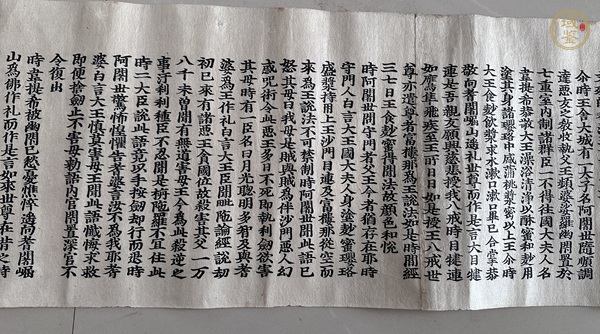 尒時王舍大城有一太子名阿闍世隨順調
達惡友之教收執父王頻婆娑羅幽閉置於
七重室內制諸群臣一不得往國大夫人名
韋提希恭敬大王澡浴清淨以酥蜜和麨用
塗其身諸瓔珞中盛蒲桃漿密以上王尒時
大王食麨飲漿求水漱口漱口畢已合掌恭
敬向耆闍崛山遙礼世尊而作是言大目犍
連是吾親友願興慈悲授我八戒時目犍連
如鷹隼飛疾至王所日日如是授王八戒世
尊亦遣尊者富樓那爲王說法如是時間經
三七日王食麨蜜得聞法故顏色和悅
時阿闍世問守門者父王今者猶存在耶時
守門人白言大王國大夫人身塗麨蜜瓔珞
盛漿持用上王沙門目連及富樓那從空而
來爲王說法不可禁制時阿闍世聞此語已
怒其母曰我母是賊與賊爲伴沙門惡人幻
惑呪術令此惡王多日不死即執利劒欲害
其母時有一臣名曰月光聰明多智及與耆
婆爲王作礼白言大王臣聞毗陁論經說劫
初已來有諸惡王貪國位故殺害其父一万
八千未曾聞有無道害母王今爲此殺逆之
事汙刹利種臣不忍聞是栴陁羅不宜住此
時二大臣說此語竟以手按劒却行而退時
阿闍世驚怖惶懼告耆婆言汝不爲我耶耆
婆白言大王慎莫害母王聞此語懺悔求救
即便捨劒止不害母勑語內官閉置深宮不
令復出
時韋提希被幽閉已愁憂憔悴遙向耆闍崛
山爲佛作禮而作是言如來世尊在昔之時